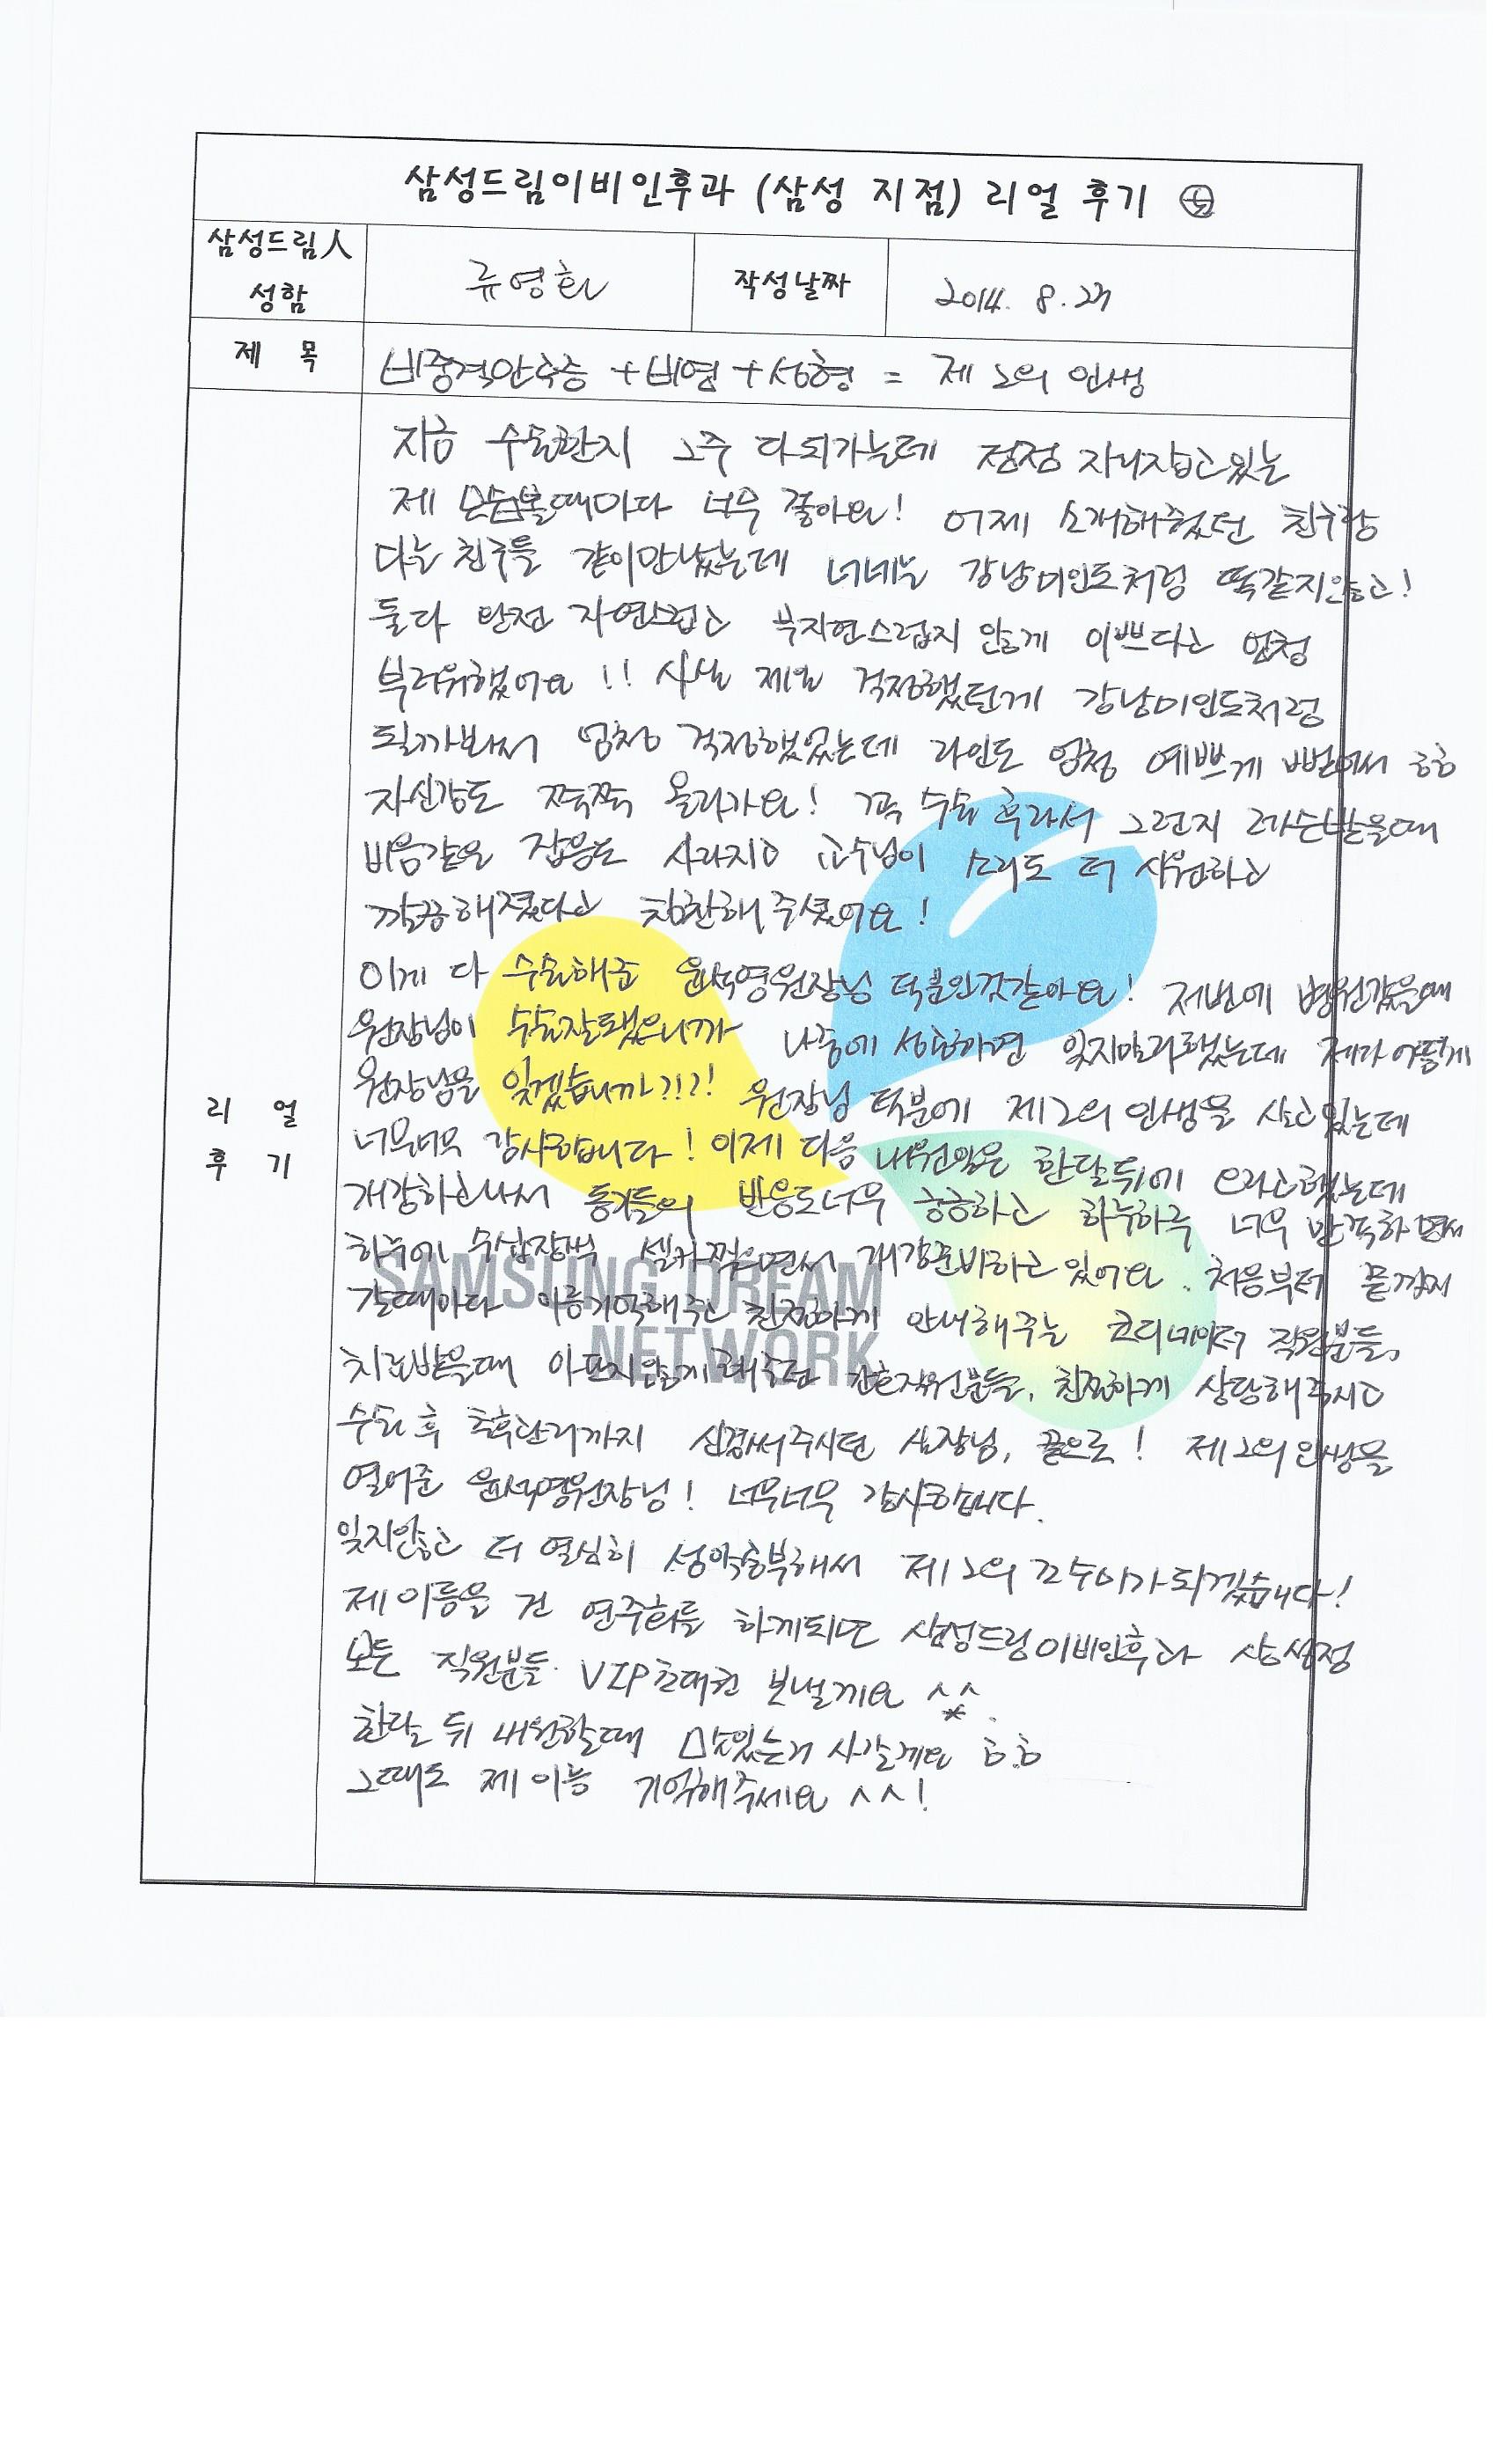 삼성드림이비인후과 (삼성 지점) 리얼 후기
삼성드림人
성함
류영환
작성날짜
2014. 8. 23
제 목
비중격만곡증 + 비염 + 성형 = 제 2의 인생
지금 수술한지 2주 다되가는데 점점 자리잡고있는
제 모습볼때마다 너무 좋아요! 어제 소개해줬던 친구랑
다른 친구들 같이만났는데 너네는 강남미인도처럼 똑같지않고!
둘다 완전 자연스럽고 부자연스럽지 않게 이쁘다고 엄청
부러워했어요!! 사실 제일 걱정했던게 강남미인도처럼
될까봐서 엄청 걱정했었는데 라인도 엄청 예쁘게 빠번어서 ㅎㅎ
자신감도 쭉쭉 올라가요! 코 수술 후라서 그런지 레슨받을때
비음같은 잡음도 사라지고 교수님이 소리도 더 시원하고
깔끔해졌다고 칭찬해주셨어요!
이게 다 수술해준 윤석영원장님 덕분인것같아요! 저번에 병원갔을때
원장님이 수술잘됐으니까 나중에 성공하면 잊지말라했는데 제가 어떻게
원장님을 잊겠습니까?!?! 원장님 덕분에 제2의 인생을 살고있는데
너무너무 감사합니다! 이제 다음 내원일은 한달뒤에 오라고했는데
개강하고나서 동기들의 반응도너무 궁금하고 하루하루 너무 만족하면서
하루에 수십장씩 셀카찍으면서 개강준비하고 있어요. 처음부터 끝까지
갈때마다 이름기억해주고 친절하게 안내해주는 코디네이터 직원분들,
치료받을때 아프지않게 해주던 간호직원분들, 친절하게 상담해주시고
수술 후 추후관리까지 신경써주시던 실장님, 끝으로! 제2의 인생을
열어준 윤석영원장님! 너무너무 감사합니다.
잊지않고 더 열심히 성악공부해서 제2의 조수미가되겠습니다!
제 이름을 건 연주회를 하게되면 삼성드림이비인후과 삼성점
모든 직원분들 VIP초대권 보낼게요 ^*^.
한달 뒤 내원할때 맛있는거 사갈게요 ㅎㅎ
그때도 제 이름 기억해주세요 ^^!
리 얼
후 기
SAMSUNG DREAM
NETWORK